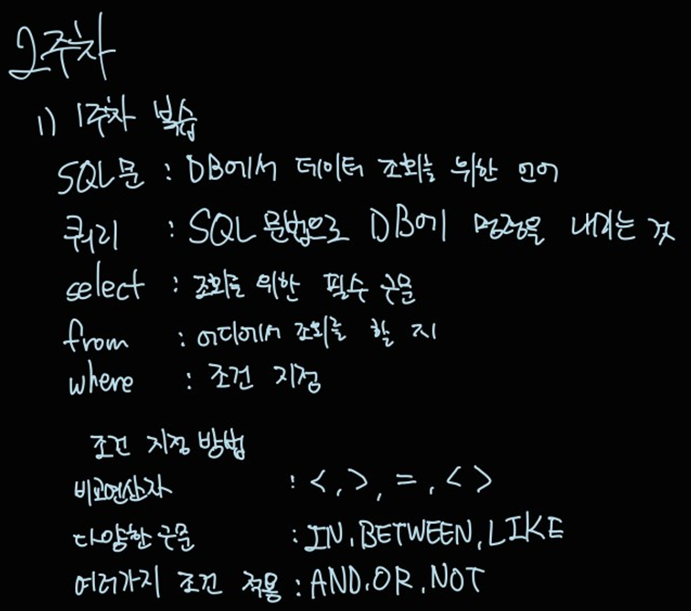 2주차
1) 1주차 복습
SQL문 : DB에서 데이터 조회를 위한 언어
쿼리 : SQL 문법으로 DB에 명령을 내리는 것
select : 조회를 위한 필수 구문
from : 어디에서 조회를 할 지
where : 조건 지정
조건 지정 방법
비교연산자 : <, >, =, <>
다양한 구문 : IN, BETWEEN, LIKE
여러가지 조건 적용 : AND, OR, NOT